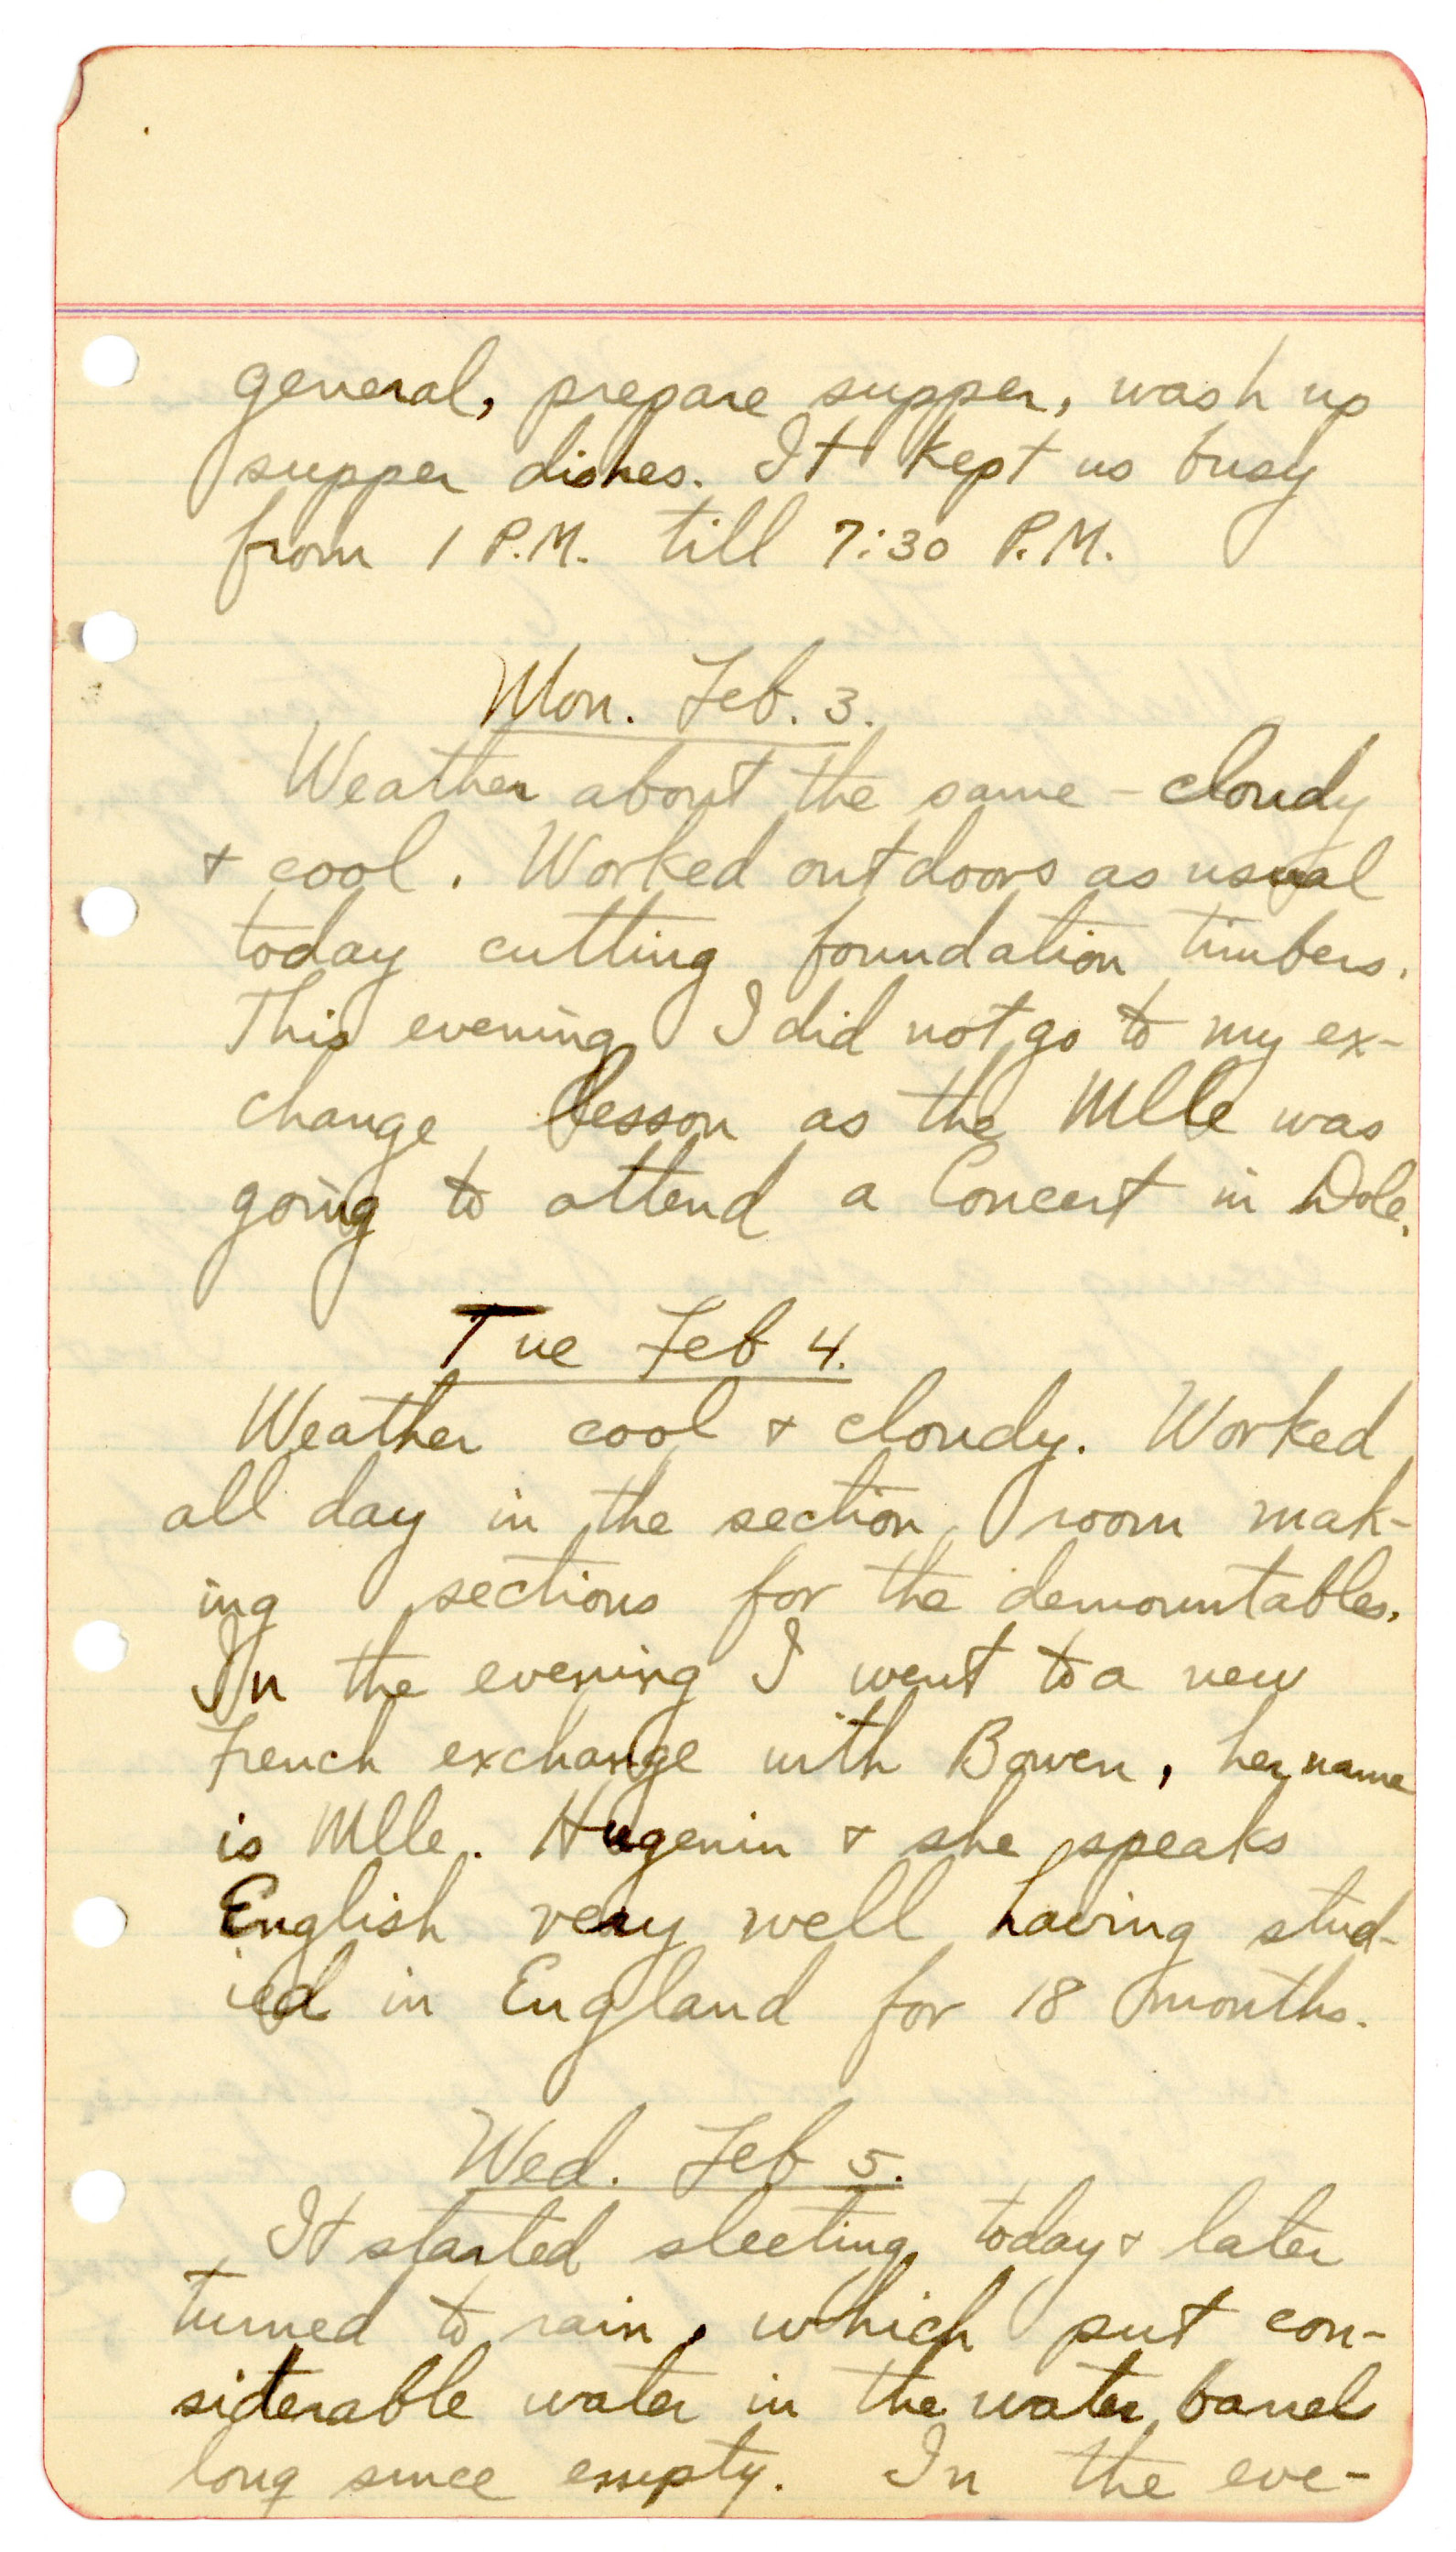 general, prepare supper, wash up
supper dishes. It kept us busy
from 1 P.M. till 7:30 P.M.
Mon. Feb. 3.
Weather about the same - cloudy
+ cool. Worked outdoors as usual
today cutting foundation timbers.
This evening I did not go to my ex-
change lesson as the Mlle was
going to attend a Concert in Dole.
Tue Feb 4.
Weather cool + cloudy. Worked
all day in the section room mak-
ing sections for the demountables.
In the evening I went to a new
French exchange with Bowen, her name
is Mlle. Hugenin + she speaks
English very well having stud-
ied in England for 18 months.
Wed. Feb 5.
It started sleeting today + later
turned to rain, which put con-
siderable water in the water barrels
long since empty. In the eve-